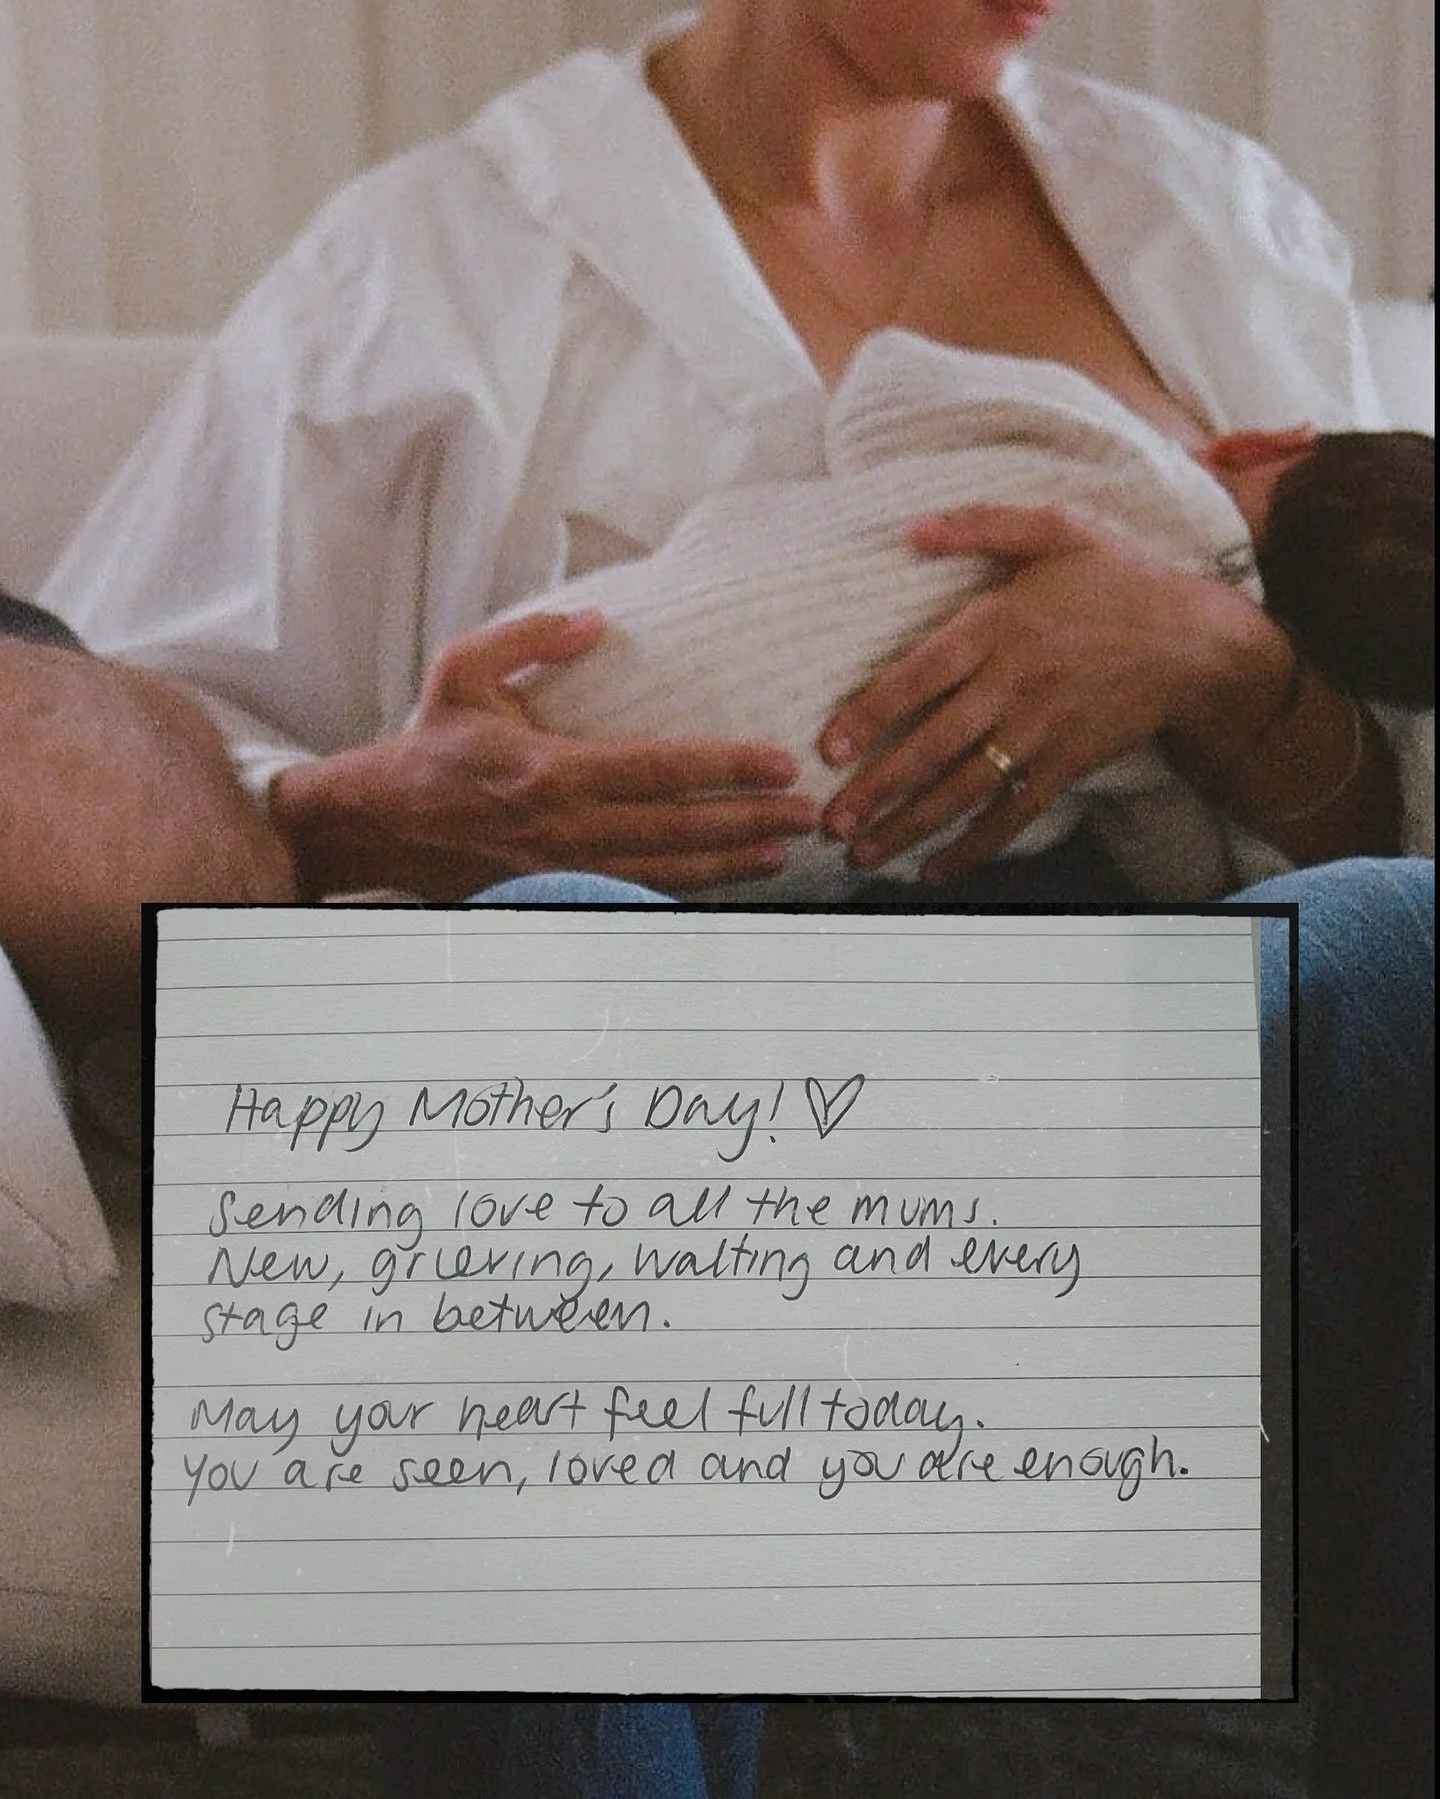 Happy Mother's Day! ♡
Sending love to all the mums.
New, grieving, waiting and every
stage in between.
May your heart feel full today.
You are seen, loved and you are enough.